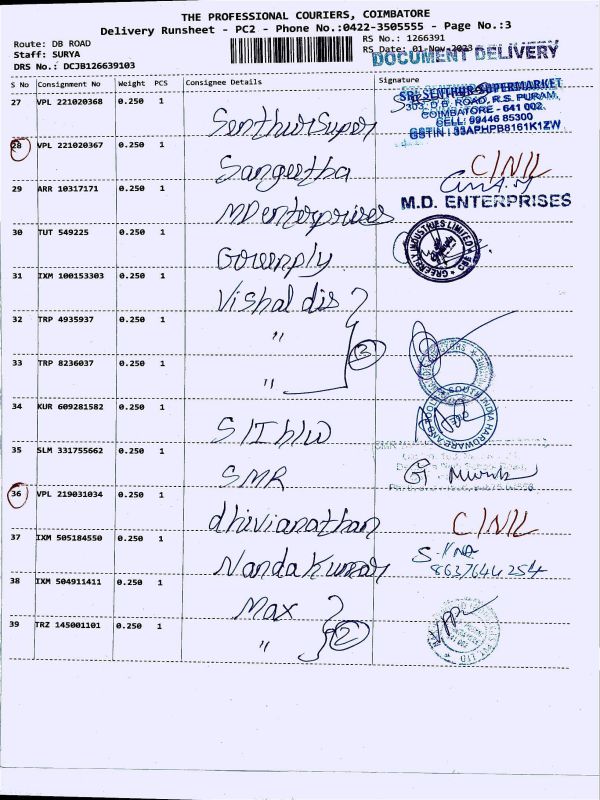 THE PROFESSIONAL COURIERS, COIMBATORE
Delivery Runsheet - PC2 - Phone No.:0422-3505555 - Page No.:3
Route: DB ROAD
RS No.: 1266391
Staff: SURYA
RS Date: 01-Nov-2023
DOCUMENT DELIVERY
DRS No.: DCJB126639103
S No Consignment No Weight PCS Consignee Details Signature
27 VPL 221020368 0.250 1 Senthur Super
SRI SENTHUR SUPERMARKET
303, D.B. ROAD, R.S. PURAM,
COIMBATORE - 641 002.
CELL: 99446 85300
GSTIN : 33APHPB8161K1ZW
28 VPL 221020367 0.250 1 Sangeetha C/NIL
29 ARR 10317171 0.250 1 MD enterprises
M.D. ENTERPRISES
30 TUT 549225 0.250 1 Greenply
GREENPLY INDUSTRIES LIMITED
31 IXM 100153303 0.250 1 Vishal dis
32 TRP 4935937 0.250 1 "
3
33 TRP 8236037 0.250 1 "
34 KUR 609281582 0.250 1 S/I h/w
SOUTH INDIA HARDWARE AND
35 SLM 331755662 0.250 1 SMR
36 VPL 219031034 0.250 1 dhivianathan C/NIL
37 IXM 505184550 0.250 1 Nanda Kumar
8637644254
38 IXM 504911411 0.250 1 Max
39 TRZ 145001101 0.250 1 "
2